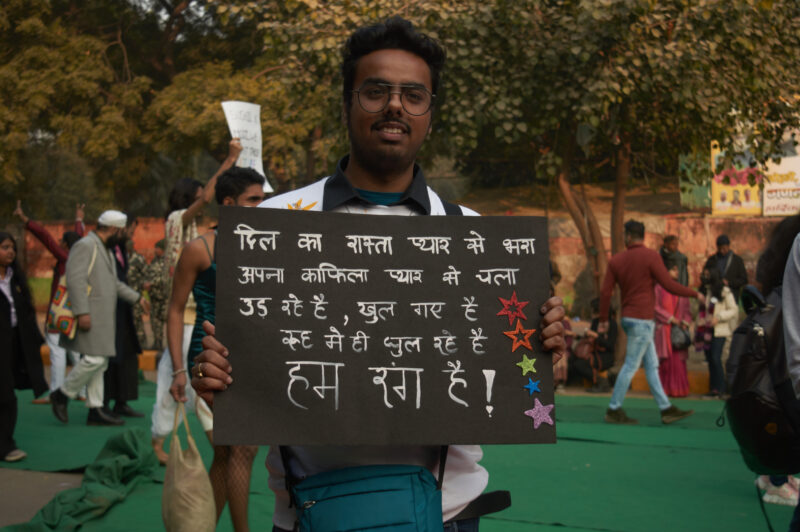 दिल का रास्ता प्यार से भरा
अपना काफिला प्यार से चला
उड़ रहे है , खुल गए है
में ही धुल रहे है
हम रंग है !